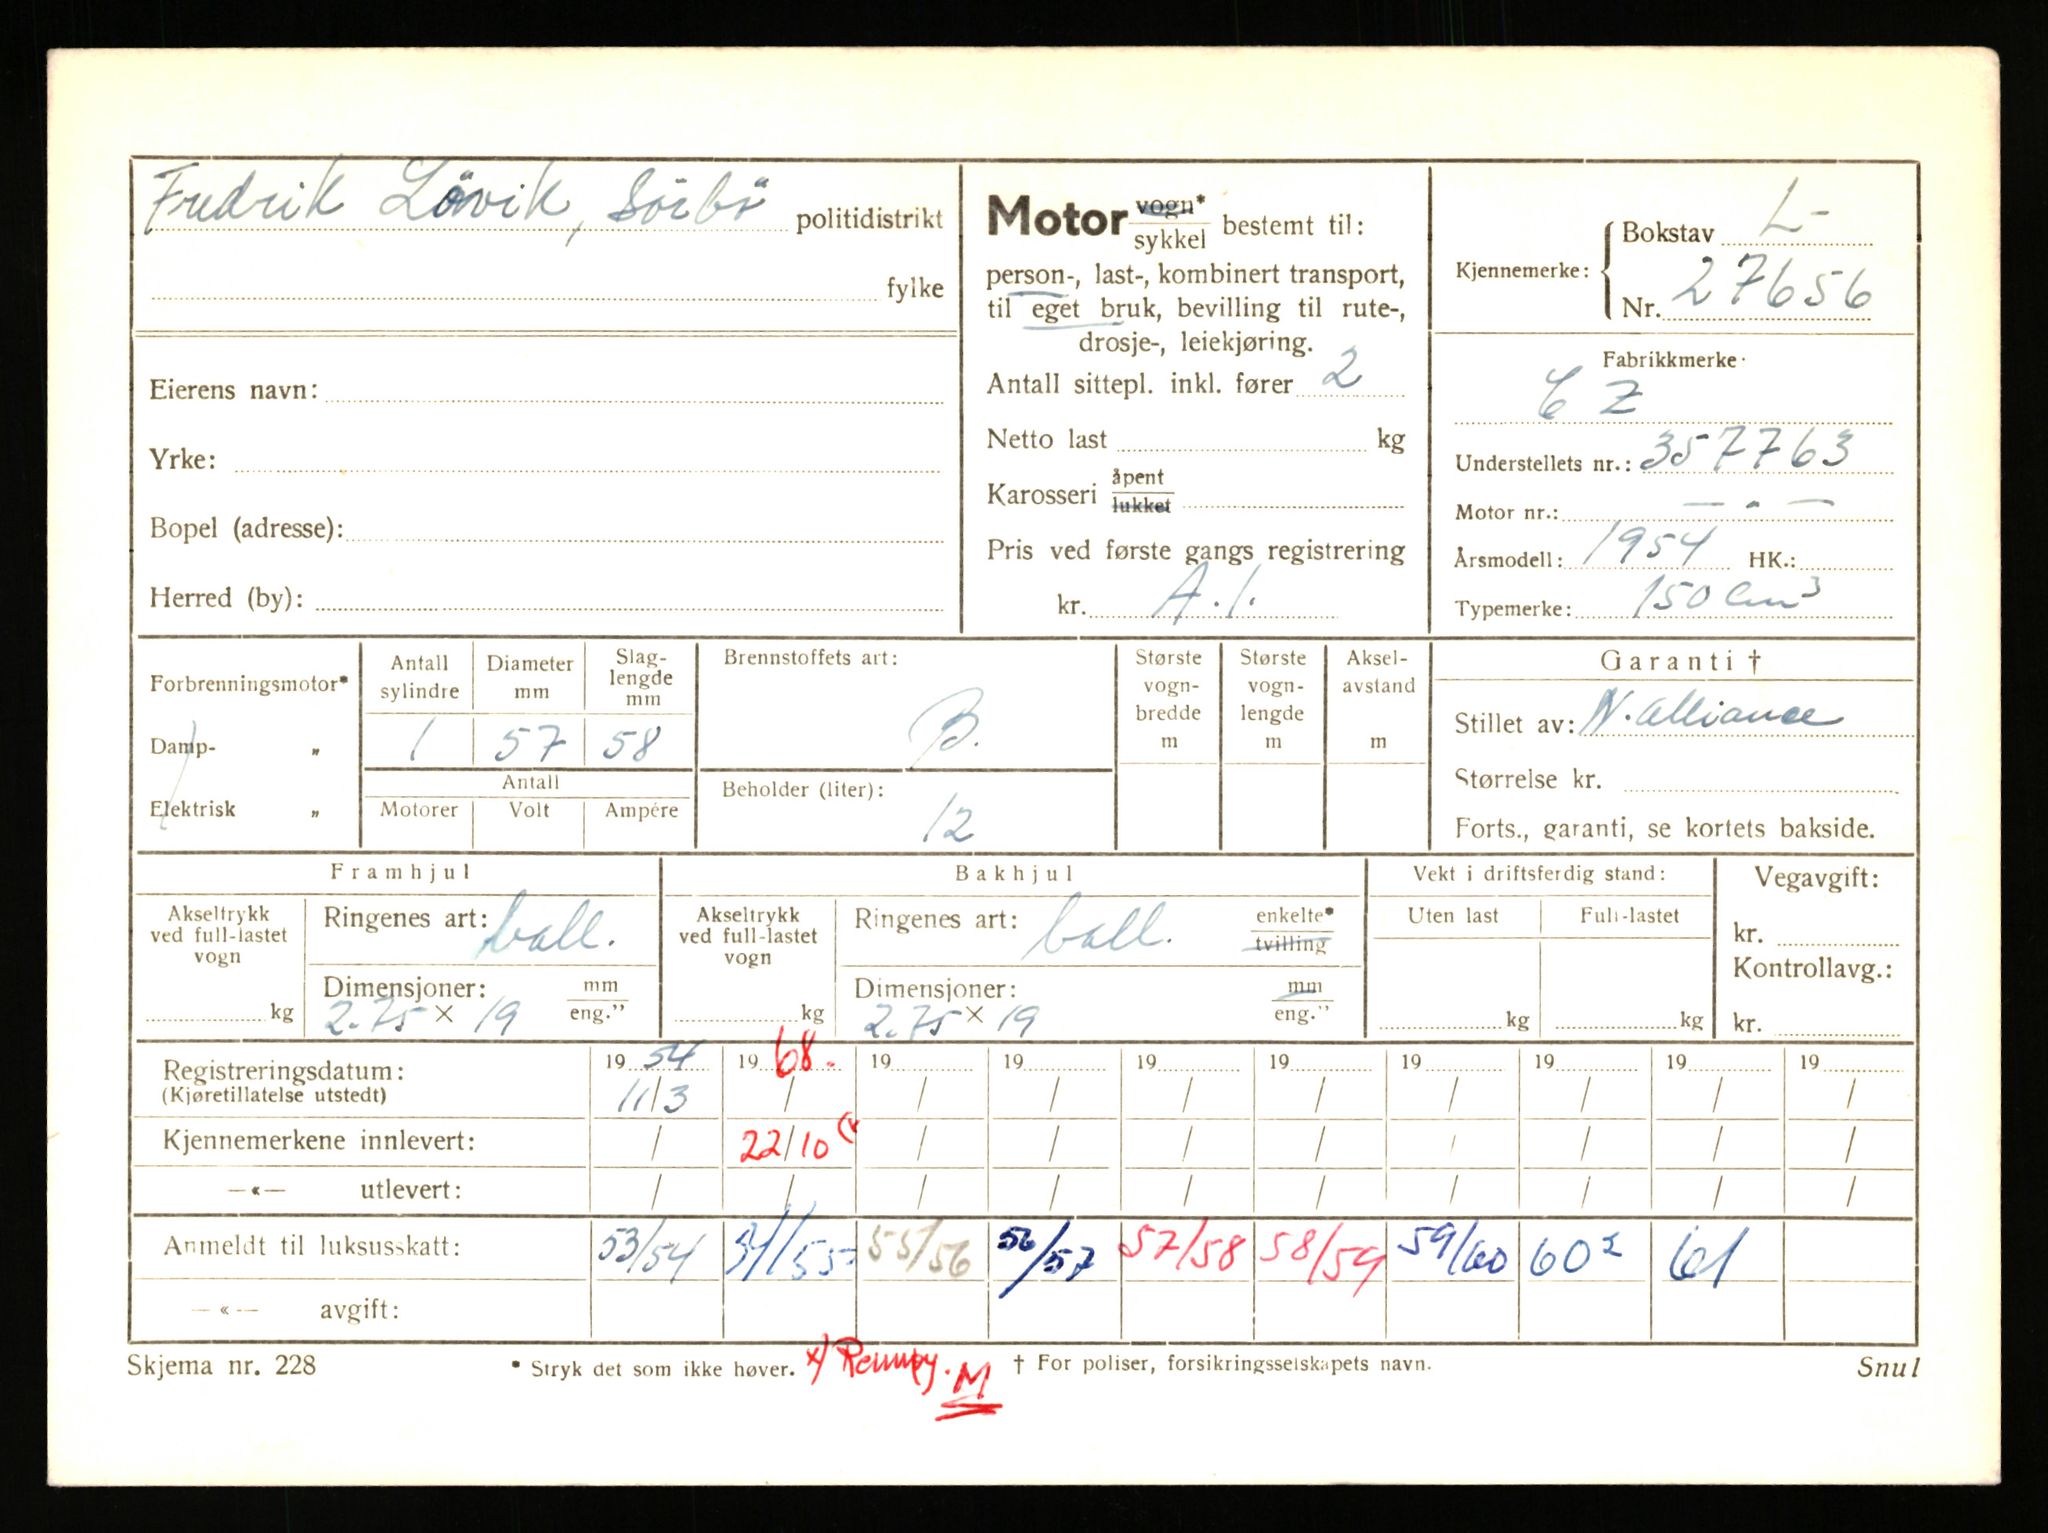 Fredrik Lövik, Sörbö politidistrikt
fylke
Eierens navn:
Yrke:
Bopel (adresse):
Herred (by):
Motor vogn* sykkel bestemt til:
person-, last-, kombinert transport,
til eget bruk, bevilling til rute-,
drosje-, leiekjøring.
Antall sittepl. inkl. fører 2
Netto last kg
Karosseri åpent lukket
Pris ved første gangs registrering
kr. A.1.
Kjennemerke: Bokstav L-
Nr. 27656
Fabrikkmerke:
CZ
Understellets nr.: 357763
Motor nr.: — „ —
Årsmodell: 1954 HK.:
Typemerke: 150 cm³
Forbrenningsmotor*
Damp- „
Elektrisk „
Antall sylindre
Diameter mm
Slag-lengde mm
1 57 58
Antall
Motorer Volt Ampére
Brennstoffets art:
B.
Beholder (liter):
12
Største vogn-bredde m
Største vogn-lengde m
Aksel-avstand m
Garanti †
Stillet av: N. alliance
Størrelse kr.
Forts., garanti, se kortets bakside.
Framhjul
Akseltrykk ved full-lastet vogn
kg
Ringenes art: ball.
Dimensjoner: mm eng."
2.75 × 19
Bakhjul
Akseltrykk ved full-lastet vogn
kg
Ringenes art: ball. enkelte* tvilling
Dimensjoner: mm eng."
2.75 × 19
Vekt i driftsferdig stand:
Uten last Full-lastet
kg kg
Vegavgift:
kr.
Kontrollavg.:
kr.
Registreringsdatum: 19 54 19 68. 19 19 19 19 19 19 19 19
(Kjøretillatelse utstedt) 11/3 / / / / / / / / /
Kjennemerkene innlevert: / 22/10 (x / / / / / / / /
—«— utlevert: / / / / / / / / / /
Anmeldt til luksusskatt: 53/54 54/55 55/56 56/57 57/58 58/59 59/60 60² 61
—«— avgift:
Skjema nr. 228 * Stryk det som ikke høver. x) M † For poliser, forsikringsselskapets navn. Snul